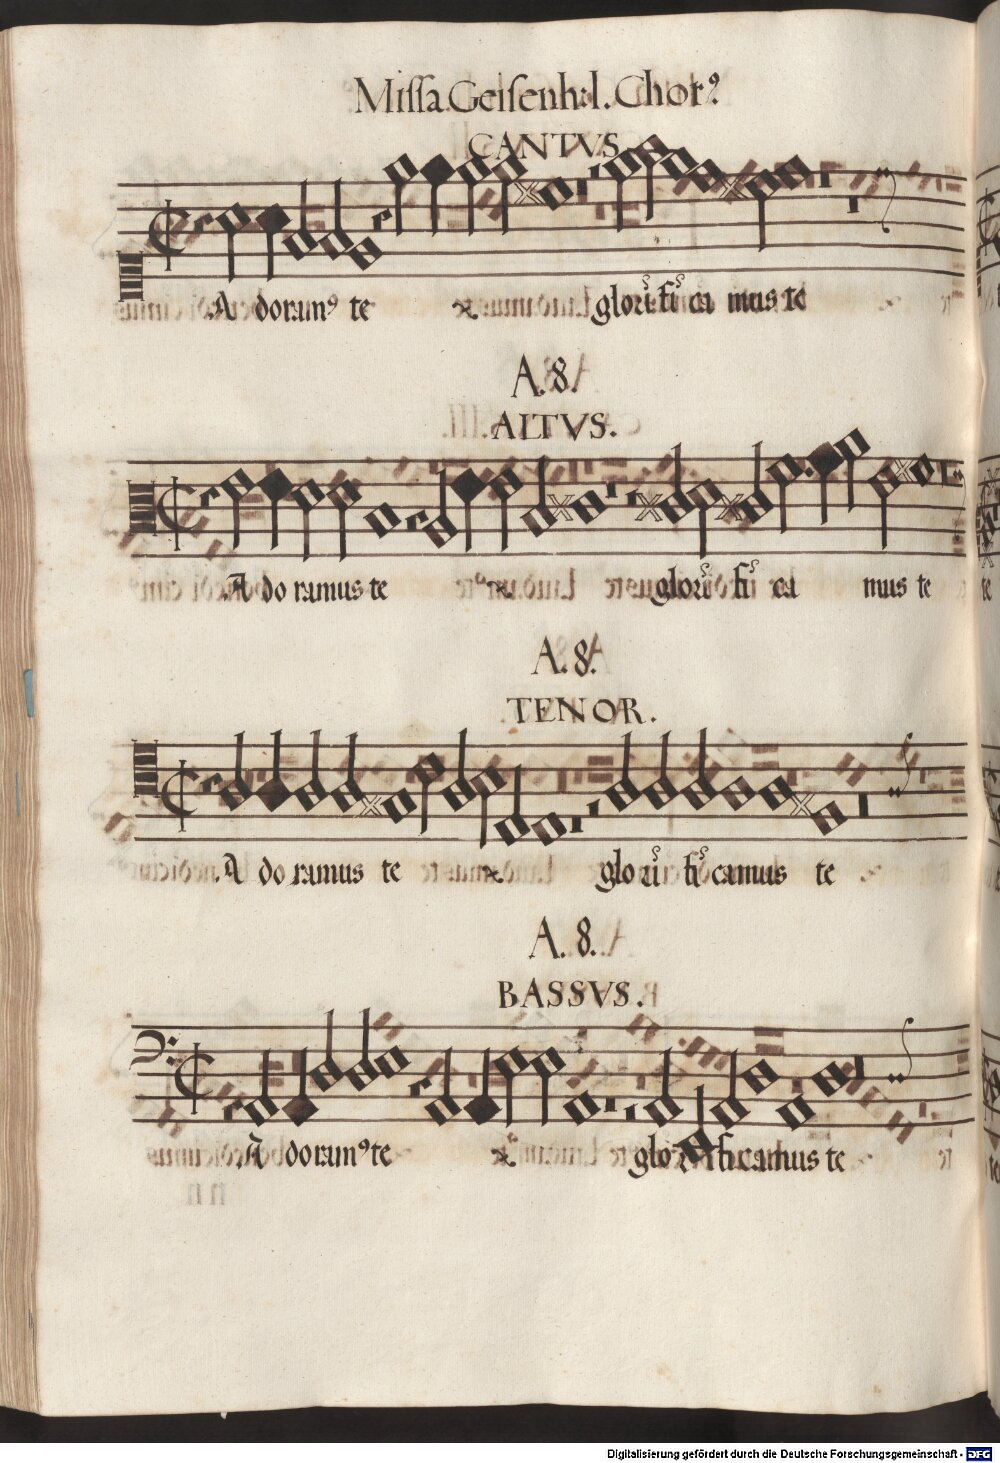 Missa. Geisenh: l. Chorꝰ
CANTVS
A doramꝰ te glori fi ca mus te
A. 8.
ALTVS.
A do ramus te glori fi ca mus te
A. 8.
TENOR.
A do ramus te glo ri fi camus te
A. 8.
BASSVS.
A doramꝰ te glo ri fi camus te
Digitalisierung gefördert durch die Deutsche Forschungsgemeinschaft - DFG